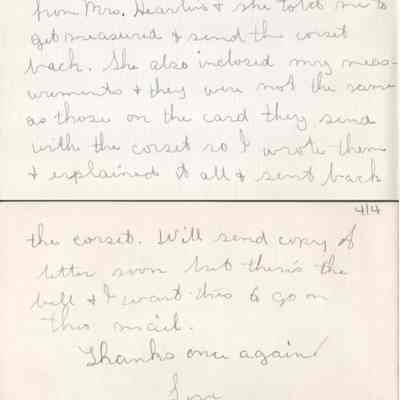 from Mrs. Hearlins & she told me to
get measured & send the corset
back. She also inclosed my meas-
urements & they were not the same
as those on the card they send
with the corset so I wrote them
& explained it all & sent back
4/4
the corset. Will send copy of
letter soon but there's the
bell & I want this to go on
this mail.
Thanks once again
Love